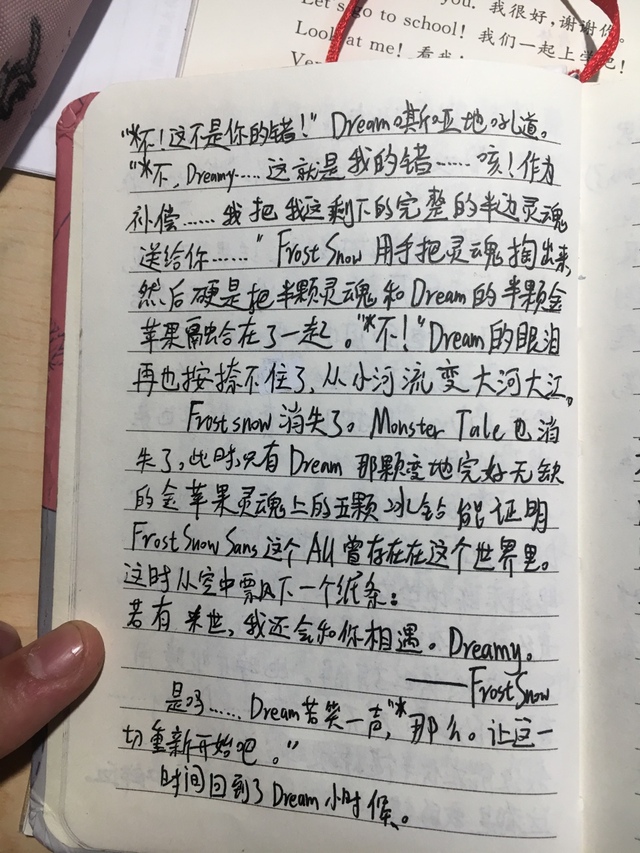 you. 我很好，谢谢你。
Let's go to school! 我们一起上学吧!
Look at me! 看我!
"*不！这不是你的错！" Dream嘶哑地吼道。
"*不，Dreamy……这就是我的错……咳！作为
补偿……我把我这剩下的完整的半边灵魂
送给你……" Frost Snow 用手把灵魂掏出来，
然后硬是把半颗灵魂和Dream的半颗金
苹果融合在了一起。"*不！"Dream的眼泪
再也按捺不住了，从小河流变大河大江。
Frost snow 消失了。Monster Tale 也消
失了，此时，只有 Dream 那颗变地完好无缺
的金苹果灵魂上的五颗冰铃能证明
Frost Snow Sans 这个 AU 曾存在在这个世界里。
这时从空中飘下一个纸条：
若有来世，我还会和你相遇。Dreamy。
——Frost Snow
是吗……Dream苦笑一声，"*那么。让这一
切重新开始吧。"
时间回到了 Dream 小时候、。